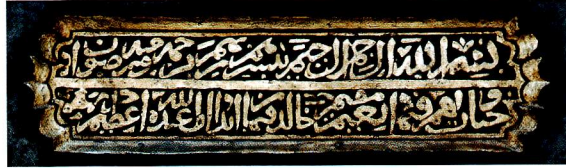 بسم الله الرحمن الرحيم يبشرهم ربهم برحمة منه ورضوان
وجنات لهم فيها نعيم مقيم خالدين فيها ابدا ان الله عنده اجر عظيم